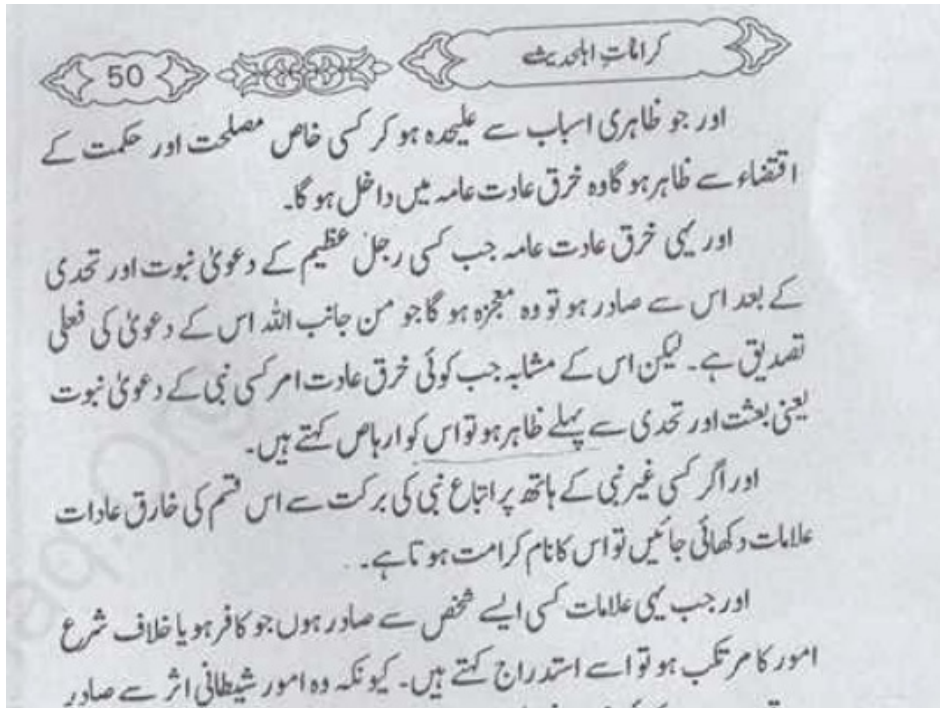 کراماتِ اہلحدیث
50
اور جو ظاہری اسباب سے علیحدہ ہو کر کسی خاص مصلحت اور حکمت کے
اقتضاء سے ظاہر ہو گا وہ خرق عادت عامہ میں داخل ہو گا۔
اور یہی خرق عادت عامہ جب کسی رجل عظیم کے دعویٰ نبوت اور تحدی
کے بعد اس سے صادر ہو تو وہ معجزہ ہو گا جو من جانب اللہ اس کے دعویٰ کی فعلی
تصدیق ہے۔ لیکن اس کے مشابہ جب کوئی خرق عادت امر کسی نبی کے دعویٰ نبوت
یعنی بعثت اور تحدی سے پہلے ظاہر ہو تو اس کو ارہاص کہتے ہیں۔
اور اگر کسی غیر نبی کے ہاتھ پر اتباع نبی کی برکت سے اس قسم کی خارق عادات
علامات دکھائی جائیں تو اس کا نام کرامت ہوتا ہے۔
اور جب یہی علامات کسی ایسے شخص سے صادر ہوں جو کافر ہو یا خلاف شرع
امور کا مرتکب ہو تو اسے استدراج کہتے ہیں۔ کیونکہ وہ امور شیطانی اثر سے صادر